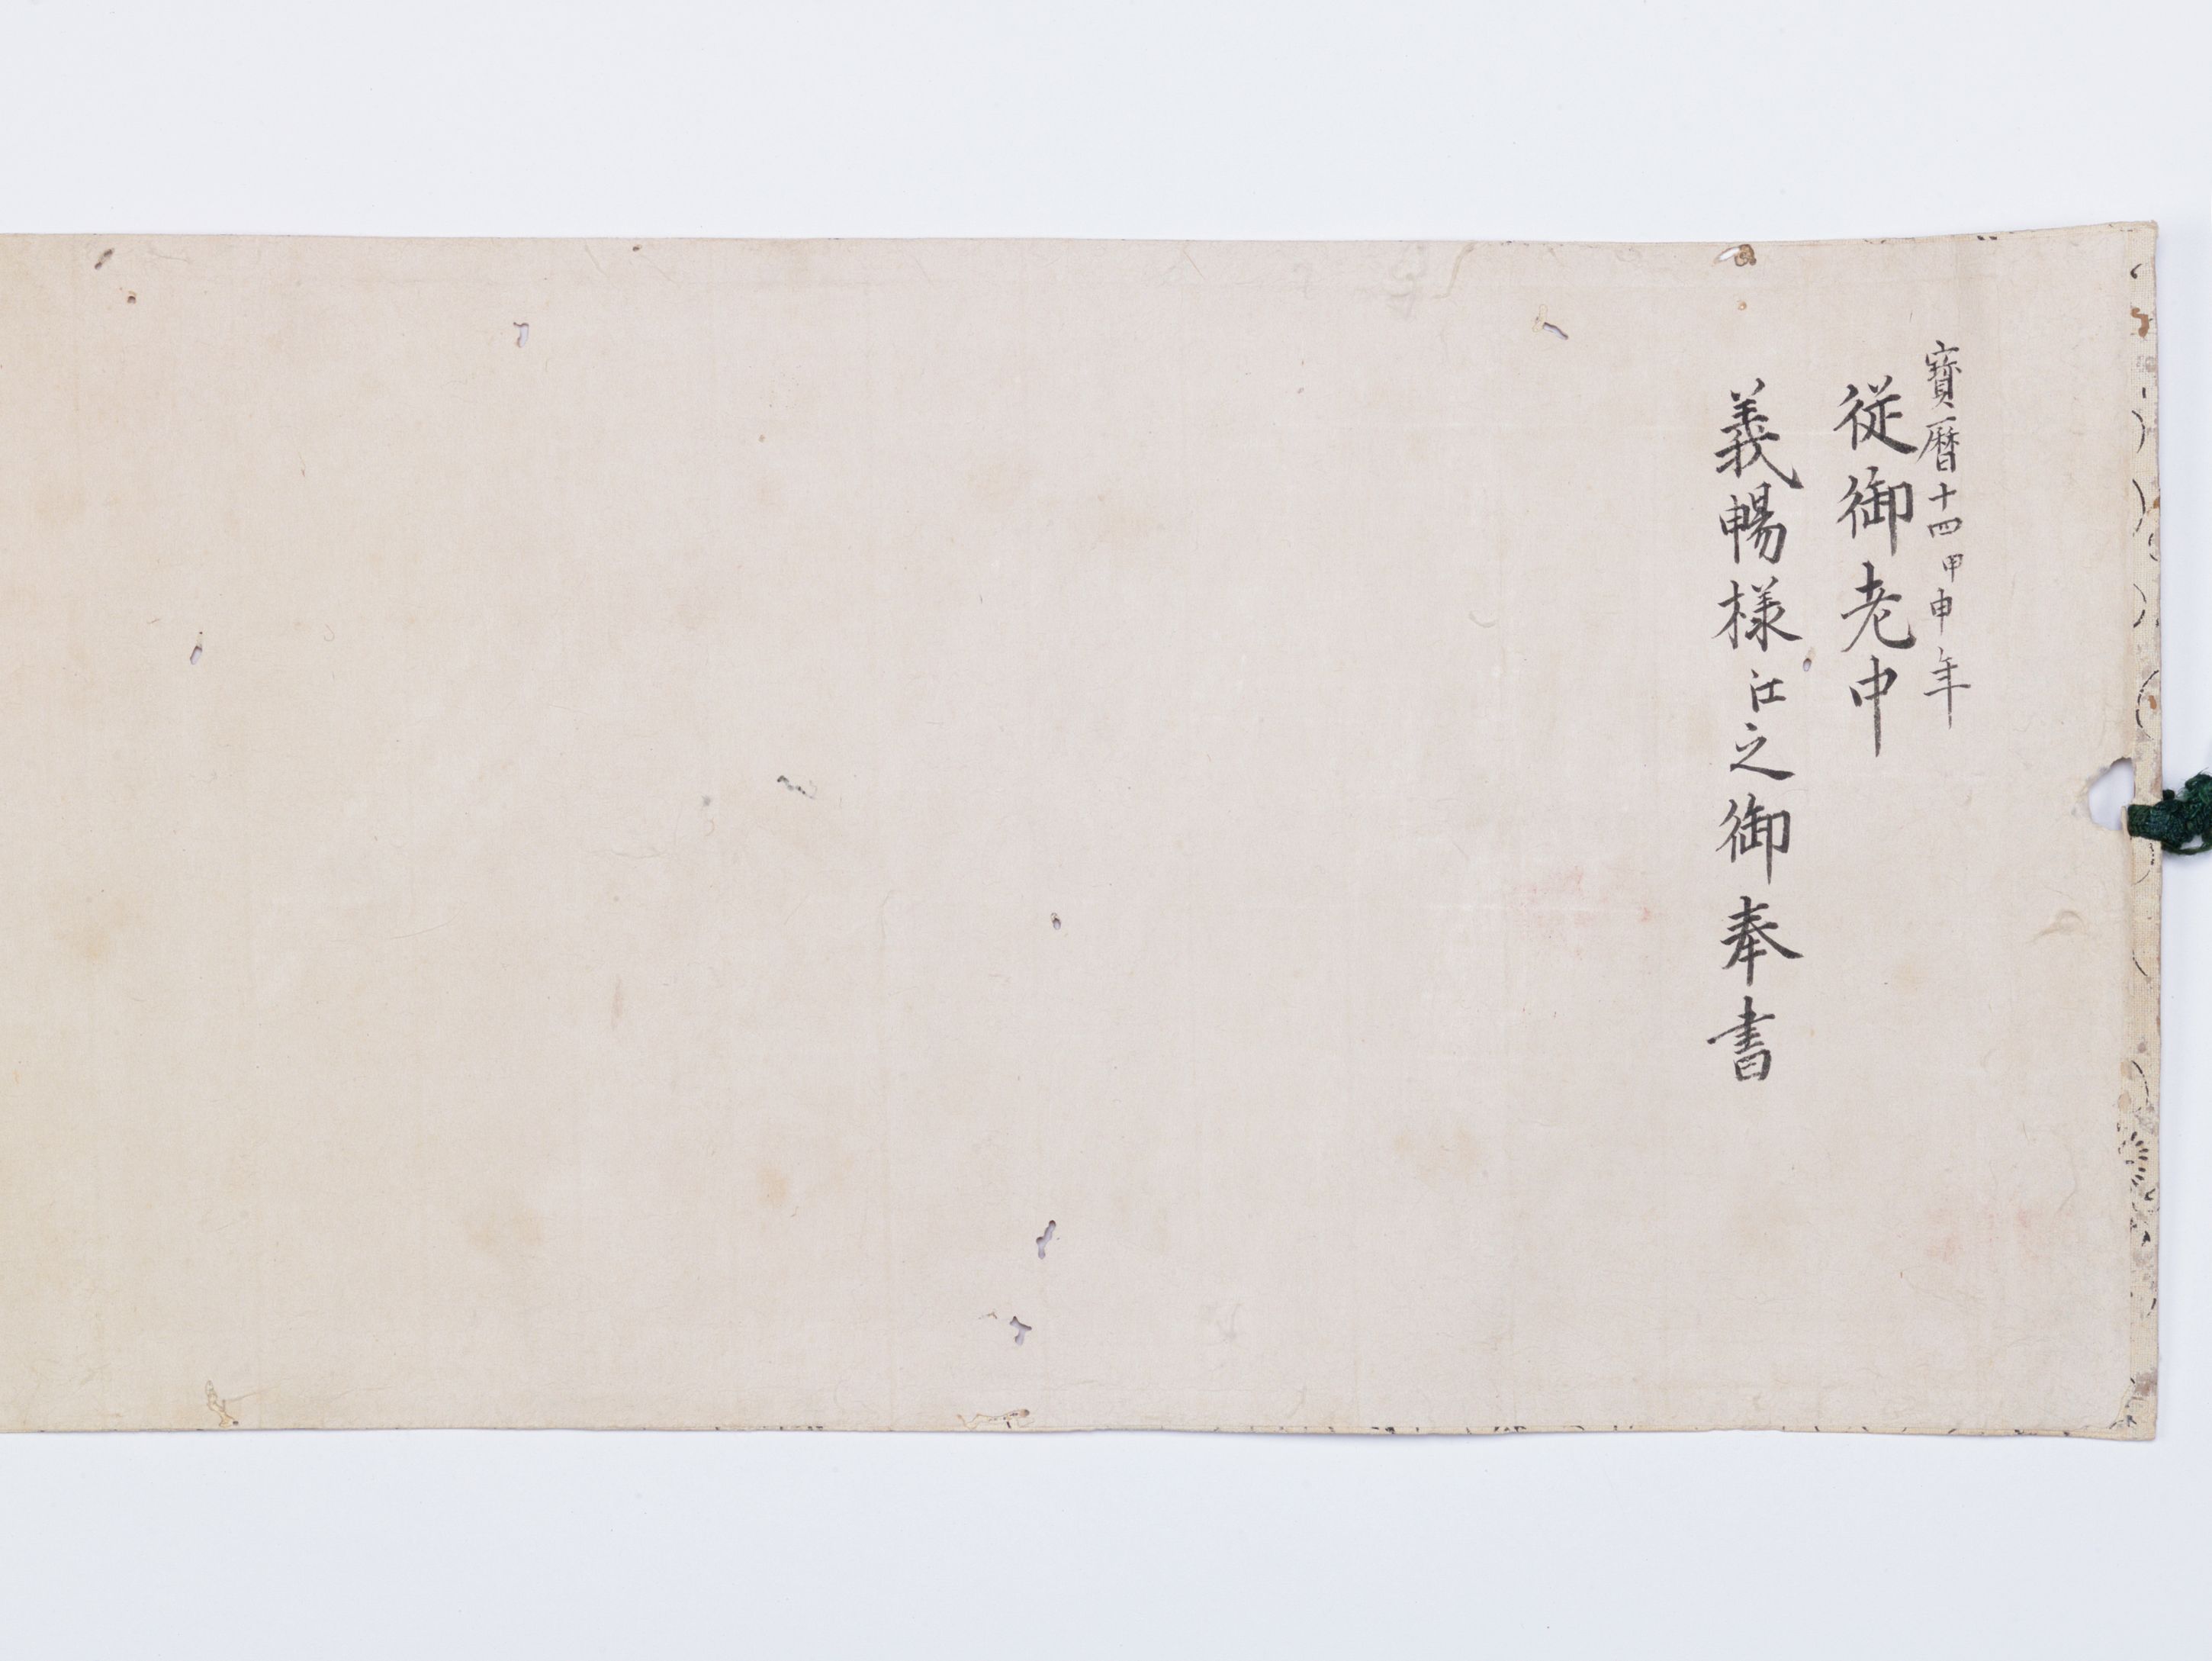 寳暦十四甲申年
従御老中
義暢様江之御奉書